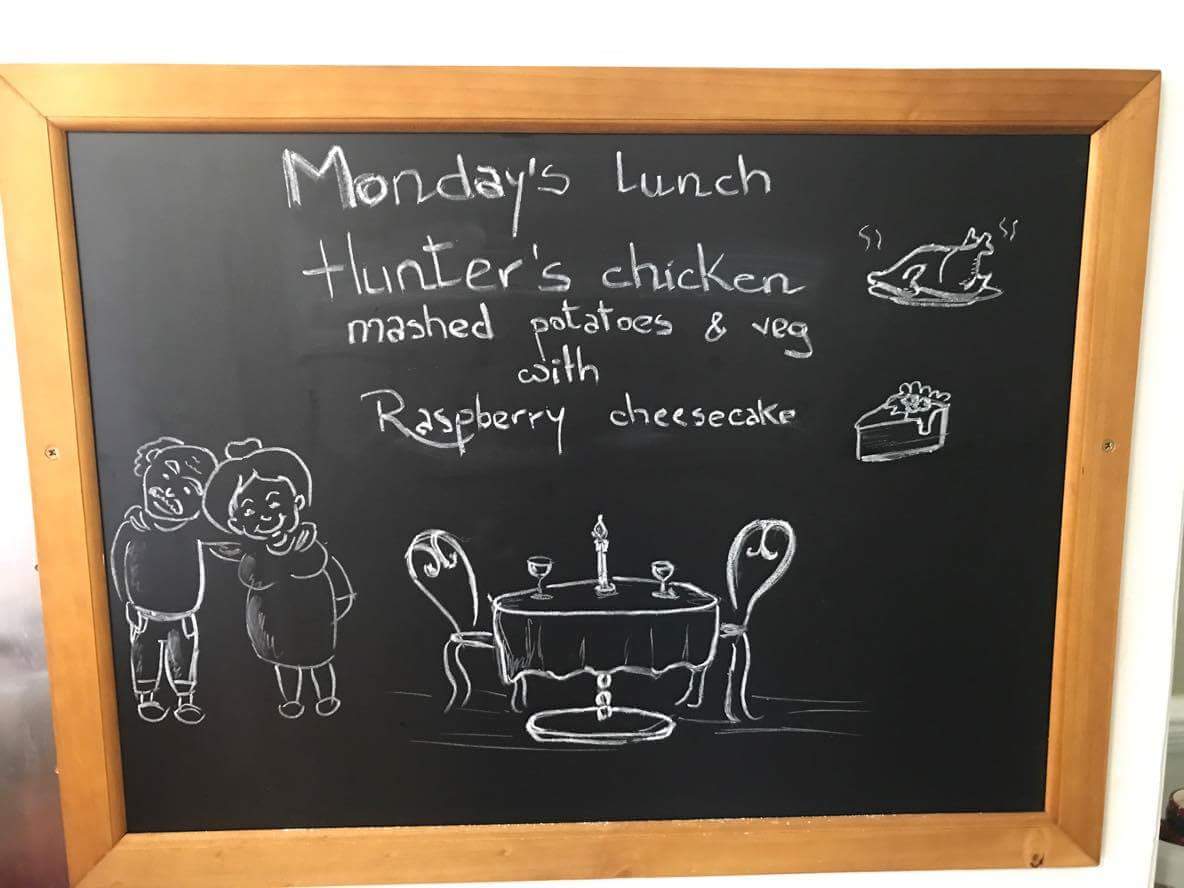 Monday's Lunch
Hunter's chicken
mashed potatoes & veg
with
Raspberry cheesecake